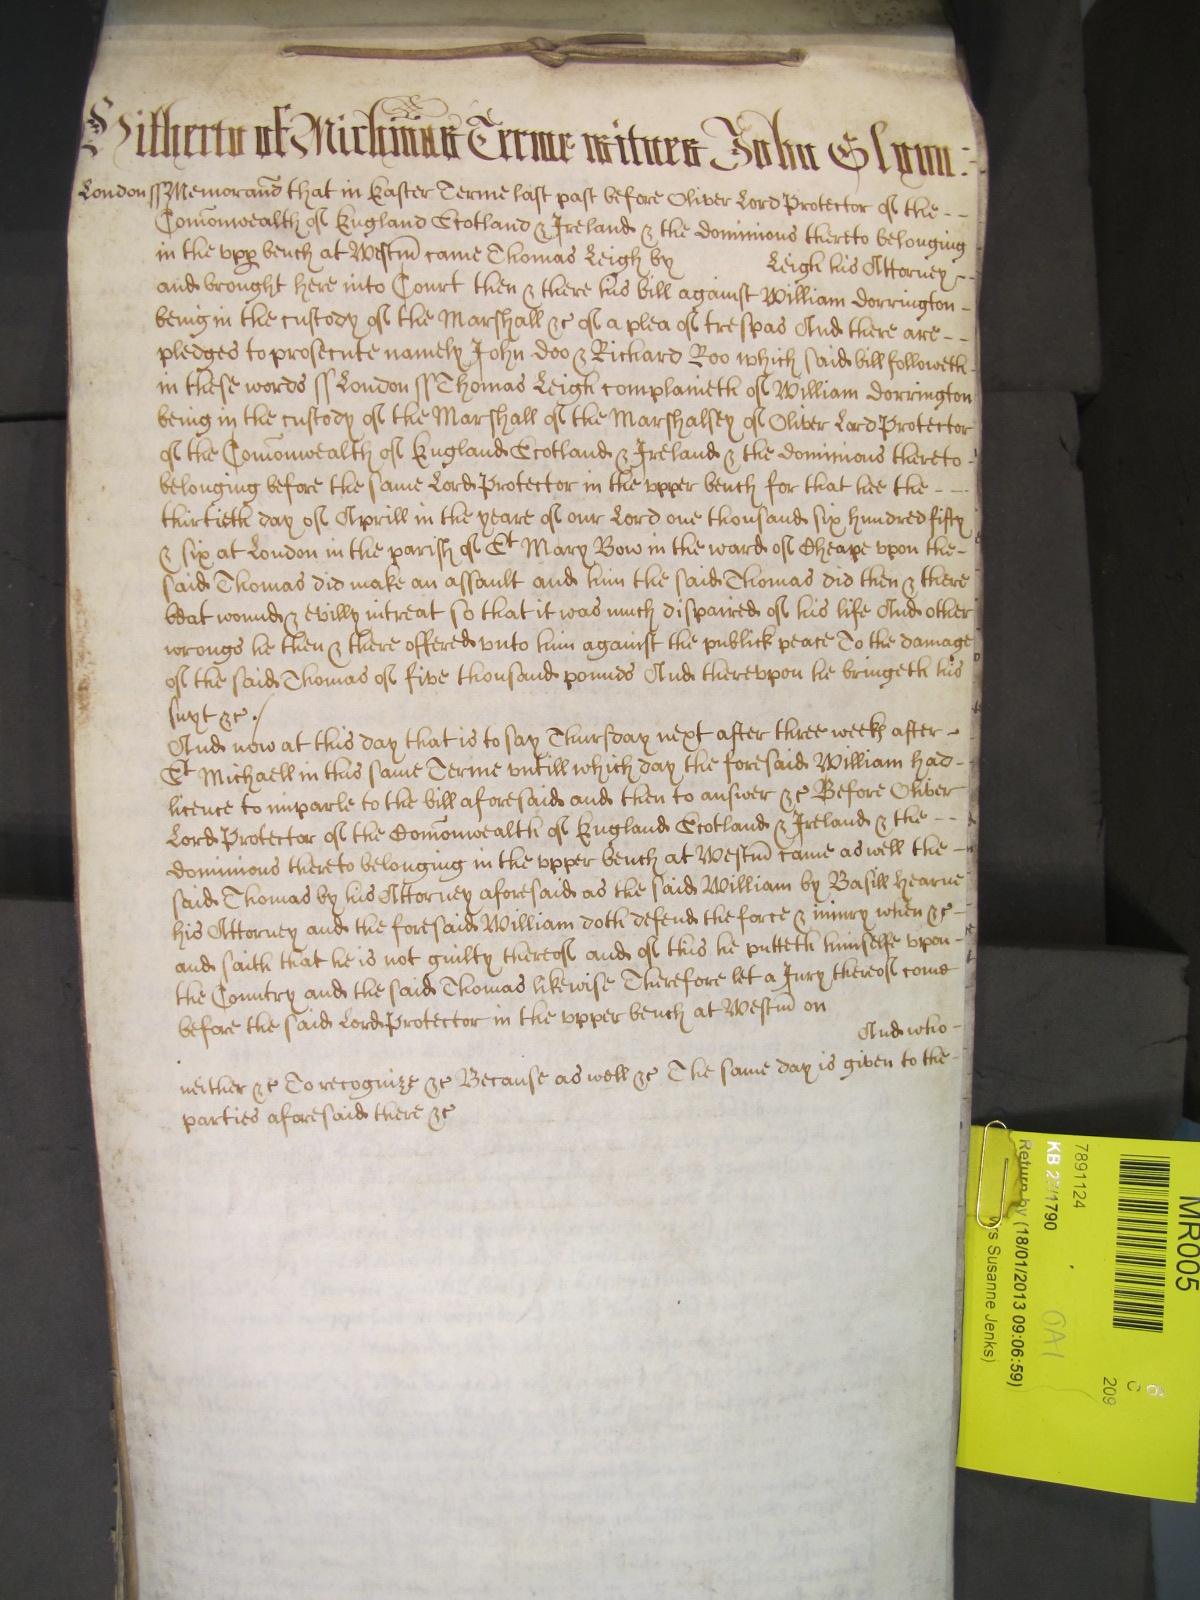 Hitherto of Michmas Terme witnes John Glynn:
London ss Memorand that in Easter Terme last past before Oliver Lord Protector of the - -
Comonwealth of England Scotland & Ireland & the dominions thereto belonging
in the upp bench at Westm came Thomas Leigh by Leigh his Attorney - -
and brought here into Court then & there his bill against William Dorrington -
being in the custody of the Marshall &c of a plea of trespas And there are - -
pledges to prosecute namely John Doo & Richard Roo which said bill followeth -
in these words ss London ss Thomas Leigh complaineth of William Dorrington
being in the custody of the Marshall of the Marshalsey of Oliver Lord Protector
of the Comonwealth of England Scotland & Ireland & the dominions thereto -
belonging before the same Lord Protector in the upper bench for that hee the - -
thirtieth day of Aprill in the yeare of our Lord one thousand six hundred fifty
& six at London in the parish of St Mary Bow in the ward of Cheape upon the -
said Thomas did make an assault and him the said Thomas did then & there
beat wound & evilly intreat so that it was much dispaired of his life And other
wrongs he then & there offered unto him against the publick peace To the damage
of the said Thomas of five thousand pounds And thereupon he bringeth his
suyt &c ./
And now at this day that is to say Thursday next after three weeks after -
St Michaell in this same Terme untill which day the foresaid William had -
licence to imparle to the bill aforesaid and then to answer &c Before Oliver
Lord Protector of the Comonwealth of England Scotland & Ireland & the - -
dominions thereto belonging in the upper bench at Westm came as well the -
said Thomas by his Attorney aforesaid as the said William by Basill Hearne
his Attorney and the foresaid William doth defend the force & iniury when &c -
and saith that he is not guilty thereof and of this he putteth himselfe upon -
the Country and the said Thomas likewise Therefore let a Jury thereof come
before the said Lord Protector in the upper bench at Westm on
And who -
neither &c To recognize &c Because as well &c The same day is given to the -
parties aforesaid there &c
MR005
6
C
209
7891124
OA1
KB 27/1790
Return by (18/01/2013 09:06:59)
Mrs Susanne Jenks)